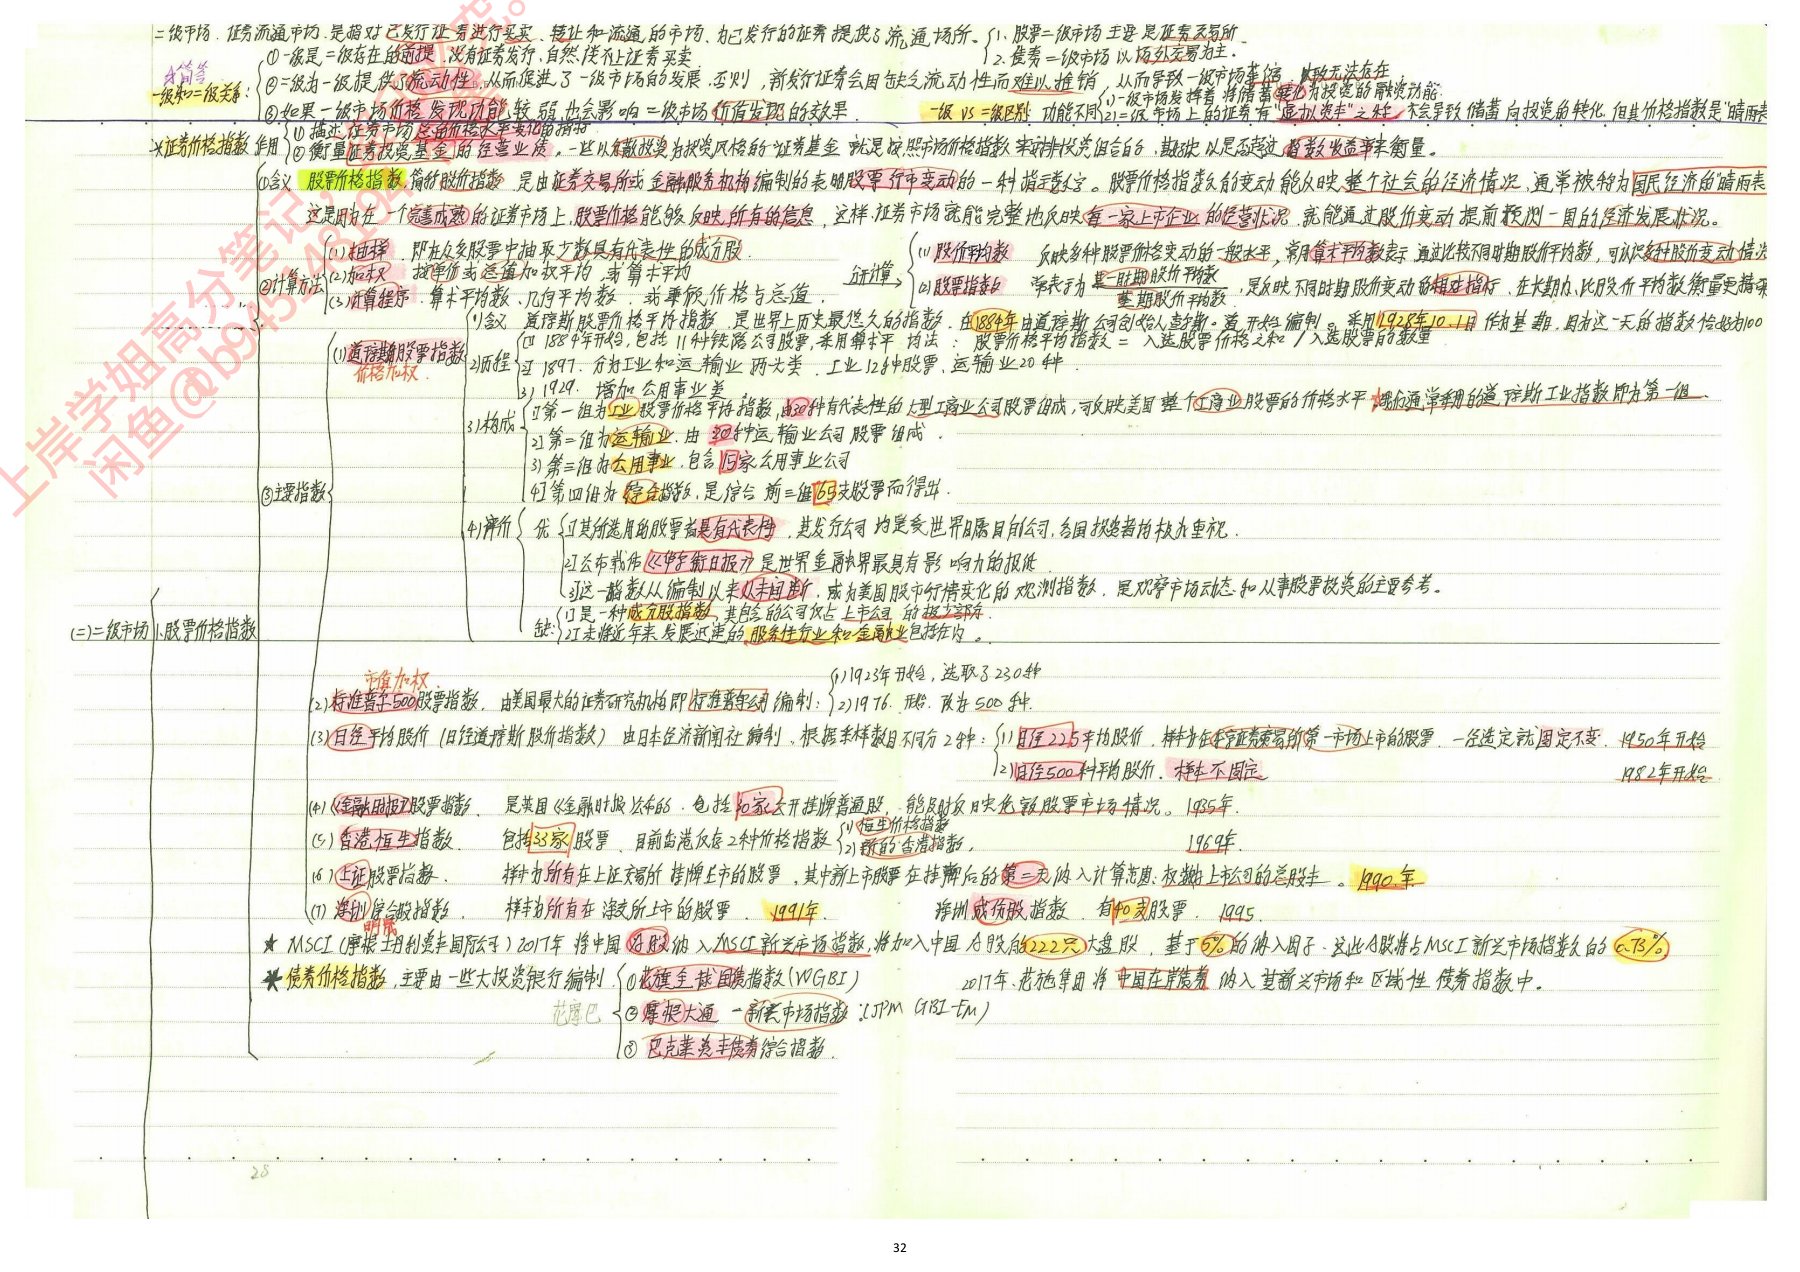 二级市场: 证券流通市场,是指对已发行证券进行买卖、转让和流通的市场,为已发行的证券提供了流通场所。
1. 股票二级市场主要是证券交易所
2. 债券二级市场以场外交易为主.
简答
一级和二级关系:
①一级是二级存在的前提,没有证券发行,自然谈不上证券买卖
②二级为一级提供了流动性,从而促进了一级市场的发展,否则,新发行证券会因缺乏流动性而难以推销,从而导致一级市场萎缩以致无法存在
③如果一级市场价格发现功能较弱,也会影响二级市场价值发现的效果.
一级 VS 二级区别 功能不同
1)一级市场发挥着将储蓄转化为投资的融资功能
2)二级市场上的证券有"虚拟资本"之称,不会导致储蓄向投资的转化,但其价格指数是"晴雨表
*证券价格指数 作用
①描述证券市场总的价格水平变化的指标
②衡量证券投资基金的经营业绩。一些以分散投资为投资风格的证券基金就是按照市场价格指数来安排投资组合的,业绩以是否超过指数收益率来衡量。
(二)二级市场
1.股票价格指数
①含义 股票价格指数,简称股价指数,是由证券交易所或金融服务机构编制的表明股票行市变动的一种指示数字。股票价格指数的变动能反映整个社会的经济情况,通常被称为国民经济的"晴雨表
这是因为在一个完善成熟的证券市场上,股票价格能够反映所有的信息,这样,证券市场就能完整地反映每一家上市企业的经营状况,就能通过股价变动提前预测一国的经济发展状况。
②计算方法
(1)抽样 即在众多股票中抽取少数具有代表性的成分股
(2)加权 按单价或总值加权平均,或算术平均
(3)计算程序 算术平均数、几何平均数,或兼顾价格与总值.
(1)股价平均数 反映多种股票价格变动的一般水平,常用算术平均数表示,通过比较不同时期股价平均数,可认识多种股价变动情况
(2)股票指数 常表示为 某一时期股价平均数 / 基期股价平均数,是反映不同时期股价变动的相对指标,在长期内,比股价平均数衡量更精确
③主要指数
(1)道琼斯股票指数
价格加权
1)含义 道琼斯股票价格平均指数,是世界上历史最悠久的指数,在1884年由道琼斯公司创始人查尔斯。道开始编制。采用1928年10.1日作为基期,因为这一天的指数恰好为100
2)历程
1] 1884年开始,包括11种铁路公司股票,采用算术平均法: 股票价格平均指数 = 入选股票价格之和/入选股票的数量
2] 1897. 分为工业和运输业两大类. 工业12种股票,运输业20种
3) 1929. 增加公用事业类
3)构成
1]第一组为工业股票价格平均指数,由30种有代表性的大型工商业公司股票组成,可反映美国整个工商业股票的价格水平,我们通常引用的道琼斯工业指数即为第一组.
2]第二组为运输业.由20种运输业公司股票组成.
3)第三组为公用事业,包含15家公用事业公司
4]第四组为综合指数,是综合前三组65支股票而得出.
4)评价
优
1]其所选用的股票者具有代表性,其发行公司均是受世界瞩目的公司,各国投资者均极为重视.
2]公布载体《华尔街日报》是世界金融界最具有影响力的报纸
3]这一指数从编制以来从未间断,成为美国股市行情变化的观测指数,是观察市场动态和从事股票投资的主要参考。
缺:
1]是一种成分股指数,其包含的公司仅占上市公司的极少部分.
2]未将近年来发展迅速的服务性行业和金融业包括在内。
市值加权
(2)标准普尔500股票指数. 由美国最大的证券研究机构即标准普尔公司编制:
1)1923年开始,选取了230种
2)1976.开始.改为500种.
(3)日经平均股价(日经道琼斯股价指数) 由日本经济新闻社编制、根据采样数目不同分2种:
(1)日经225平均股价,样本为在东京证券交易所第一市场上市的股票.一经选定就固定不变. 1950年开始
2)日经500种平均股价. 样本不固定 1982年开始
(4)《金融时报》股票指数. 是英国《金融时报》公布的.包括30家公开挂牌普通股.能及时反映伦敦股票市场情况。1935年.
(5)香港恒生指数. 包括33家股票.目前香港仅存2种价格指数
1)恒生价格指数
2)新的香港指数,
1969年.
(6)上证股票指数. 样本为所有在上证交易所挂牌上市的股票,其中新上市股票在挂牌后的第二天纳入计算范围:权数为上市公司的总股本。1990.年
(7)深圳综合股指数. 样本为所有在深交所上市的股票. 1991年. 深圳成份股指数. 有40支股票. 1995.
明晟
★ MSCI(摩根士丹利资本国际公司)2017年将中国A股纳入MSCI新兴市场指数,将加入中国A股的222只大盘股,基于5%的纳入因子.这些A股将占MSCI新兴市场指数的0.73%
★ 债券价格指数,主要由一些大投资银行编制
①花旗全球国债指数(WGBI)
②摩根大通一新兴市场指数:(JPM GBI-EM)
③巴克莱资本债券综合指数.
花摩巴
2017年.花旗集团将中国在岸债券纳入其新兴市场和区域性债券指数中。
28
32
上岸学姐高分笔记,
闲鱼@b94524810